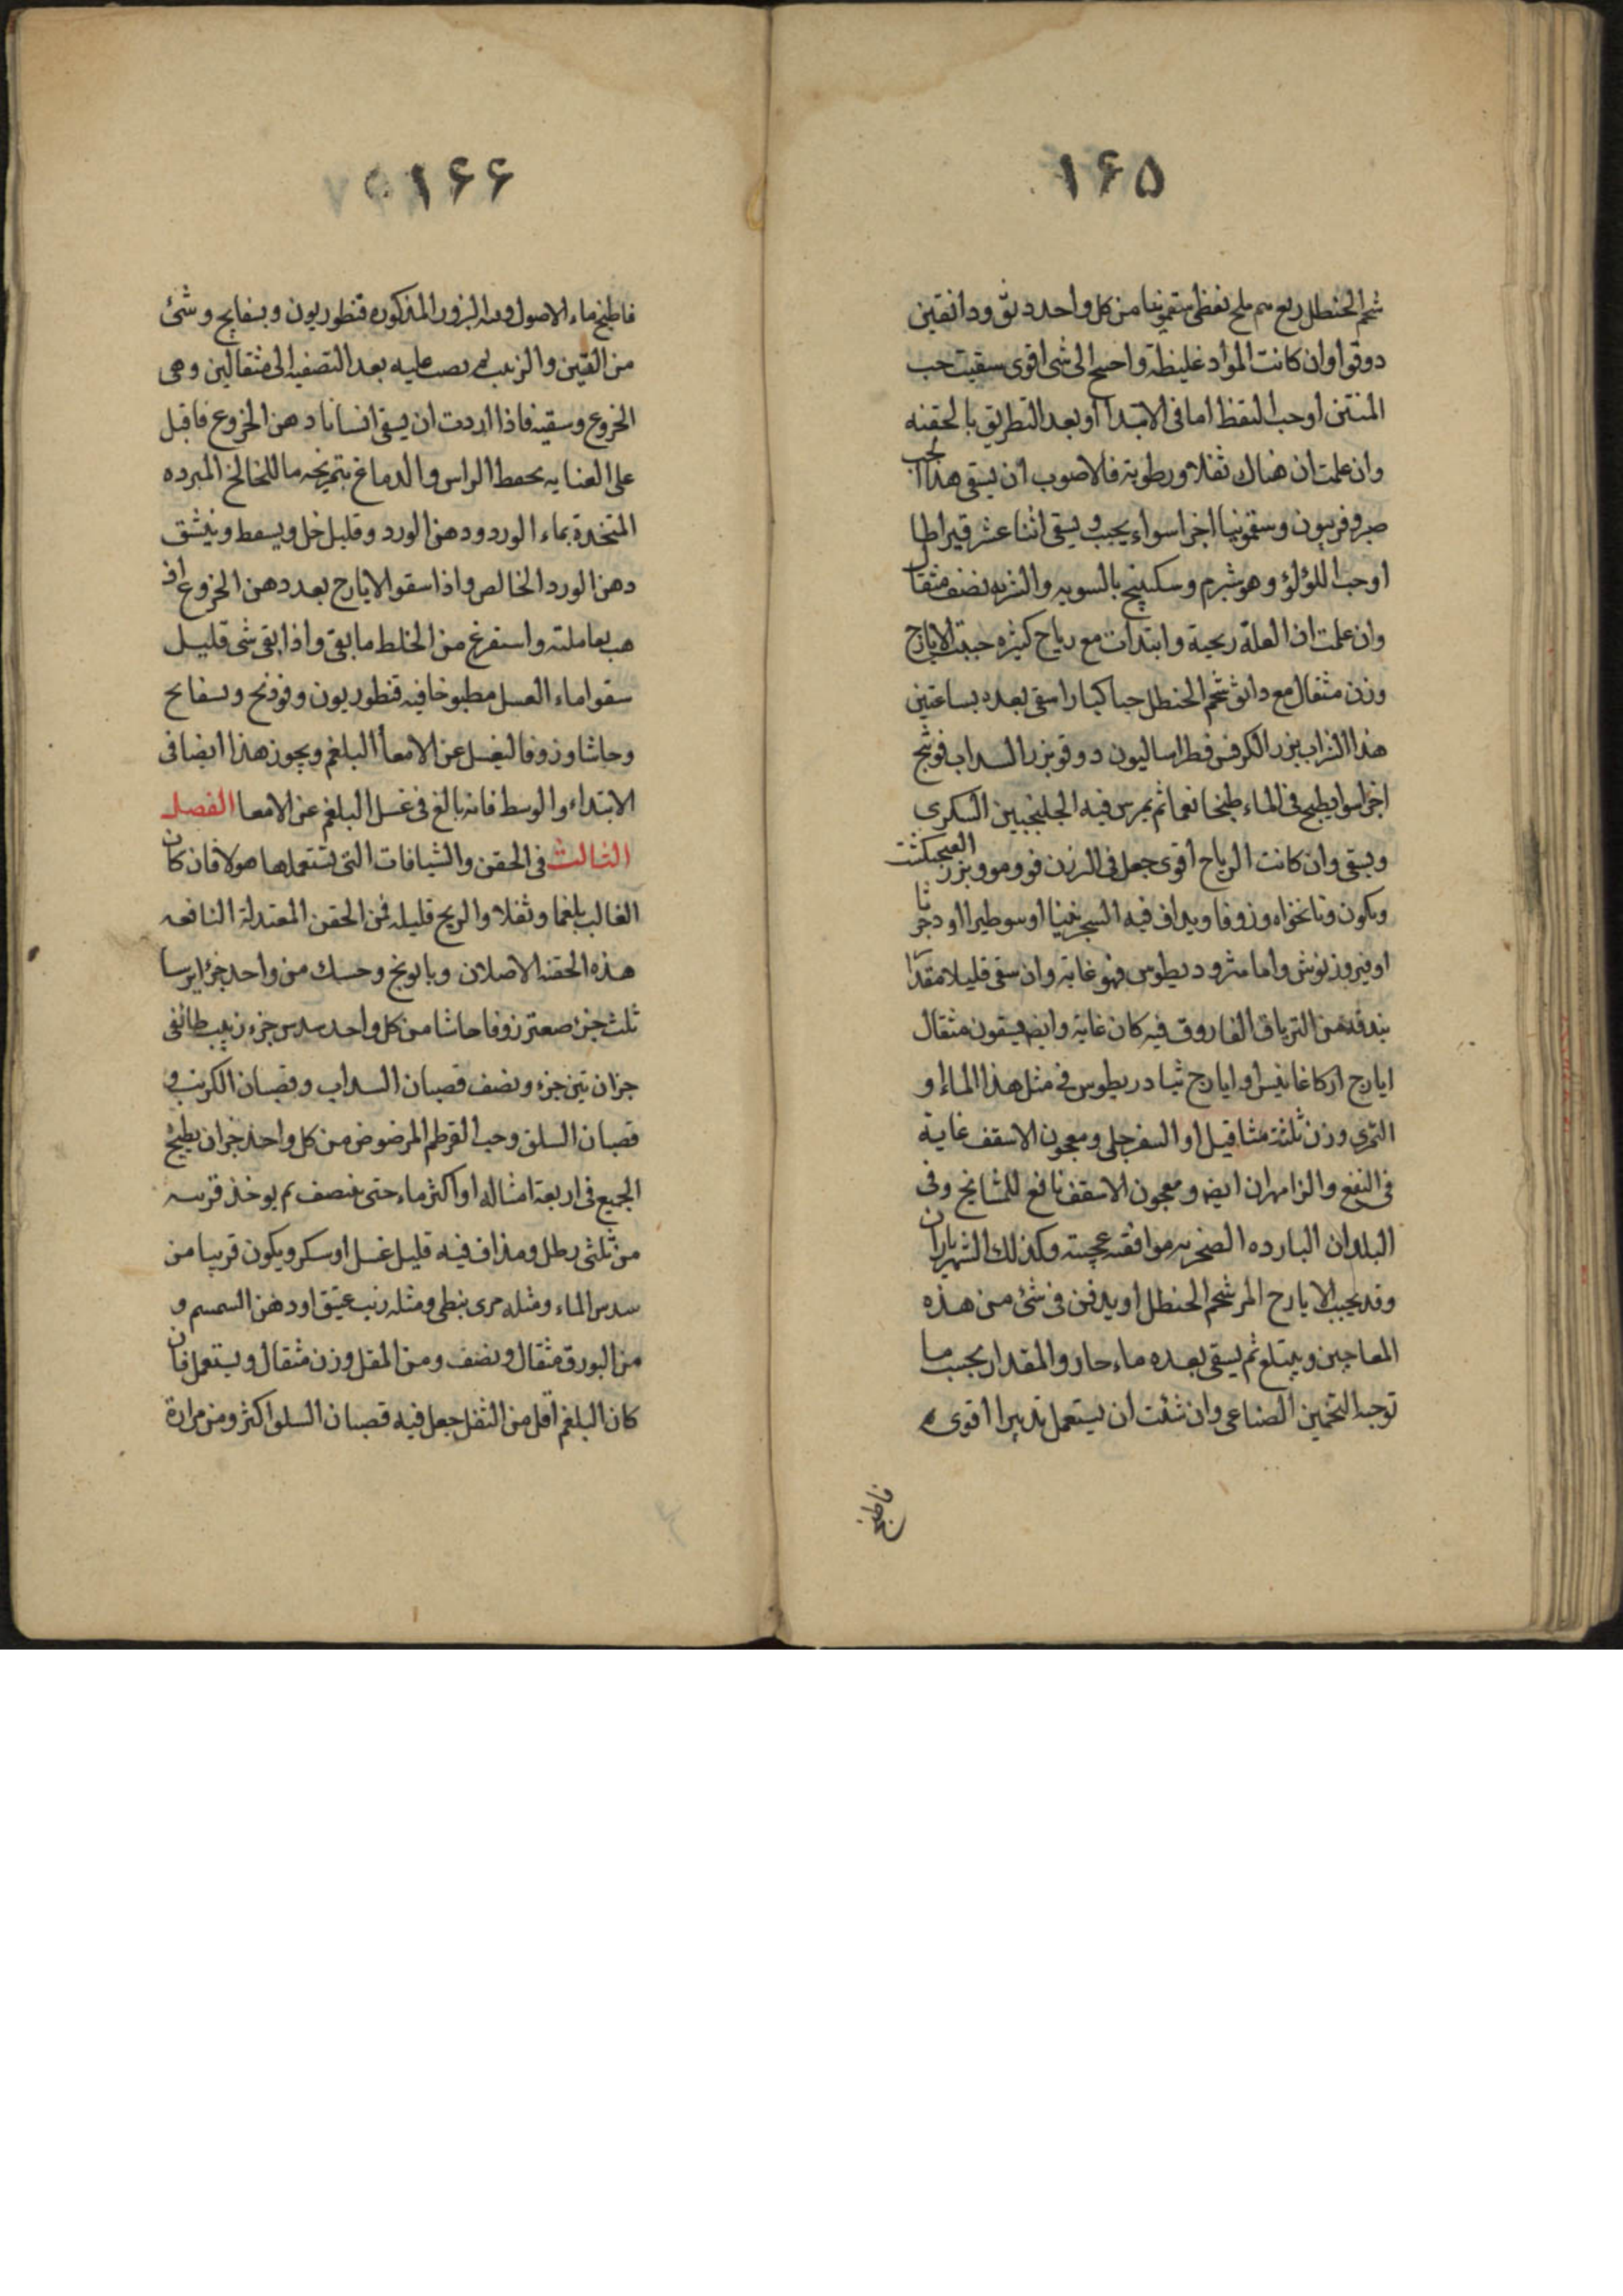 ۱۶۵
شحم الحنظل ربع م ملح نفطی سقمونیا من کل واحد دنق ودانقین
دوقو اوان کانت المواد غلیظة واحتیج الی شی اقوی سقیت حب
المنتن اوحب النفط امافی الابتدا اوبعد التطریق بالحقنه
وان علمت ان هناك ثفلا ورطوبة فالاصوب ان یسقی هذا الحب
صبر وفربیون وسقمونیا اجزا سواء یحبب ویسقی اثنا عشر قیراطا
اوحب اللؤلؤ وهو شبرم وسکبینج بالسویه والشربه نصف مثقال
وان علمت ان العلة ریحیة وابتدات مع ریاح کثیره حببت الایارج
وزن مثقال مع دانق شحم الحنظل حبا کبارا سقی بعده بساعتین
هذا الشراب بزر الکرفس فطراسالیون دوقو بزر السداب فوتنج
اجزا سوا یطبخ فی الماء طبخا نعما ثم یمرس فیه الجلنجبین السکری
ویسقی وان کانت الریاح اقوی جعل فی الوزن فو ومو وبزر الفنجنکشت
وکمون ونانخواه وزوفا ویداف فیه السجزنیا اوسوطیرا اودحمرثا
اوفیروزنوش واما مثرودیطوس فهو غایة وان سقی قلیلا مقدار
بندقة من التریاق الفاروق فیه کان غایة وایضا یسقون مثقال
ایارج ارکاغانیس او ایارج ثیادریطوس فی مثل هذا الماء او
التمری وزن ثلثة مثاقیل او السفرجلی ومعجون الاسقف غایة
فی النفع والزامهران ایضا ومعجون الاسقف نافع للمشایخ وفی
البلدان الباردة الصخریه موافقه عجیبته وکذلك الشهریاران
وقد یحبب الایارج المر شحم الحنظل او یدفن فی شئ من هذه
المعاجین ویبتلع ثم یسقی بعده ماء حار والمقدار بحسب ما
توجبه التخمین الصناعی وان شئت ان یستعمل تدبیرا اقوی
فاطبخ
۱۶۶
فاطبخ ماء الاصول وفیه البزور المذکوره قنطوریون وبسفایج وشئ
من التین والزبیب ثم یصب علیه بعد التصفیه الی مثقالین دهن
الخروع وسقیته فاذا اردت ان یسقی انسانا دهن الخروع فاقبل
علی العنایه بحفط الراس والدماغ بتمریخه بماللخالخ المبرده
المتخذة بماء الورد ودهن الورد وقلیل خل ویسعط وینشق
دهن الورد الخالص واذا سقوا الایارج بعد دهن الخروع اذ
هب بعاملته واستفرغ من الخلط ما بقی واذا بقی شی قلیل
سقوا ماء العسل مطبوخا فیه قنطوریون وفودنج وبسفایج
وحاشا وزوفا لیغسل عن الامعاء البلغم ویجوز هذا ایضا فی
الابتداء والوسط فانه بالغ فی غسل البلغم عن الامعا الفصل
الثالث فی الحقن والشیافات التی تستعملها هولا فان کان
الغالب بلغما وثفلا والریح قلیله فمن الحقن المعتدلة النافعه
هذه الحقنه الاصلان وبابونج وحسك من واحد جزء ایرسا
ثلث جزء صعتر زوفا حاشا من کل واحد سدس جزء زبیب طائفی
جزان تین جزء ونصف قصبان السداب وقصبان الکرنب و
قصبان السلق وحب القرطم المرضوض من کل واحد جزان یطبخ
الجمیع فی اربعة امثاله او اکثر ماء حتی ینصف ثم یوخذ قریبه
من ثلثی رطل ویذاف فیه قلیل عسل او سکر ویکون قریبا من
سدس الماء ومثله مری نبطی ومثله زیت عتیق اودهن السمسم و
من البورق مثقال ونصف ومن المقل وزن مثقال ویستعمل فان
کان البلغم اقل من الثفل جعل فیه قصبان السلق اکثر ومن مرارة